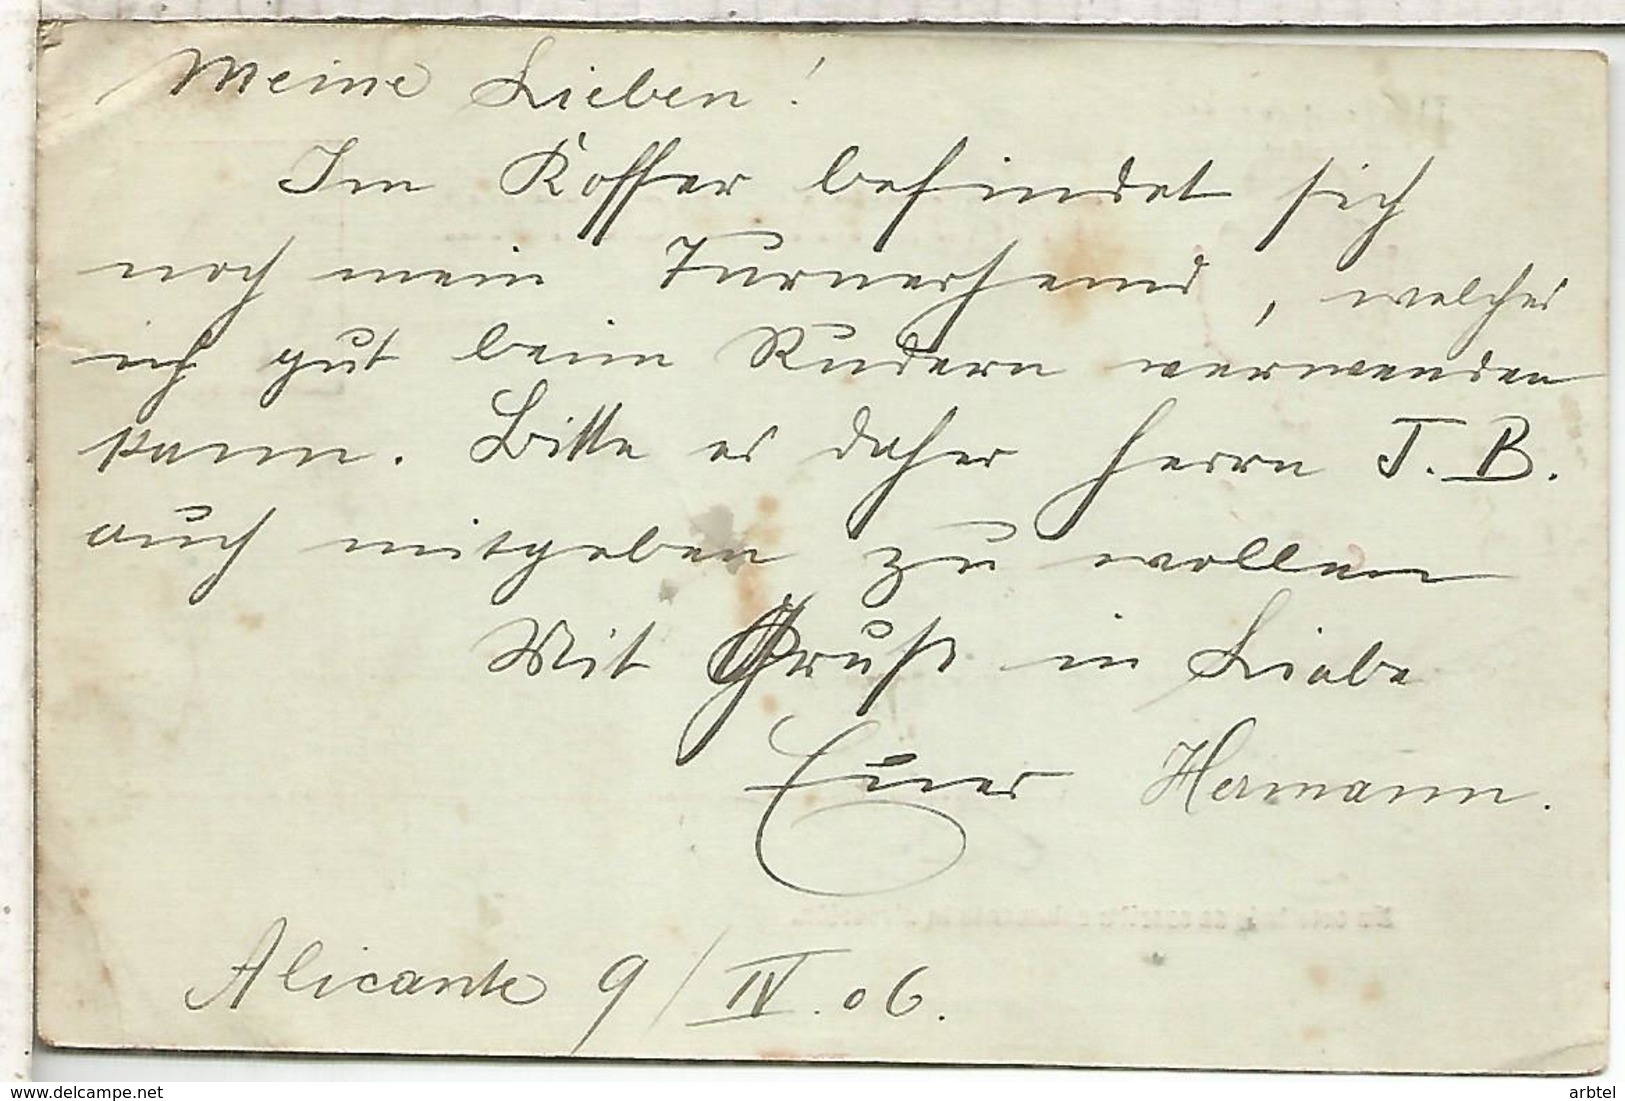 Meine Lieben!
Im Koffer befindet sich
noch mein Turnerhemd, welches
ich gut beim Rudern verwenden
kann. Bitte es daher Herrn J. B.
auch mitgeben zu wollen
Mit Gruß in Liebe
Euer Hermann.
Alicante 9/IV.06.
arbtel
www.delcampe.net